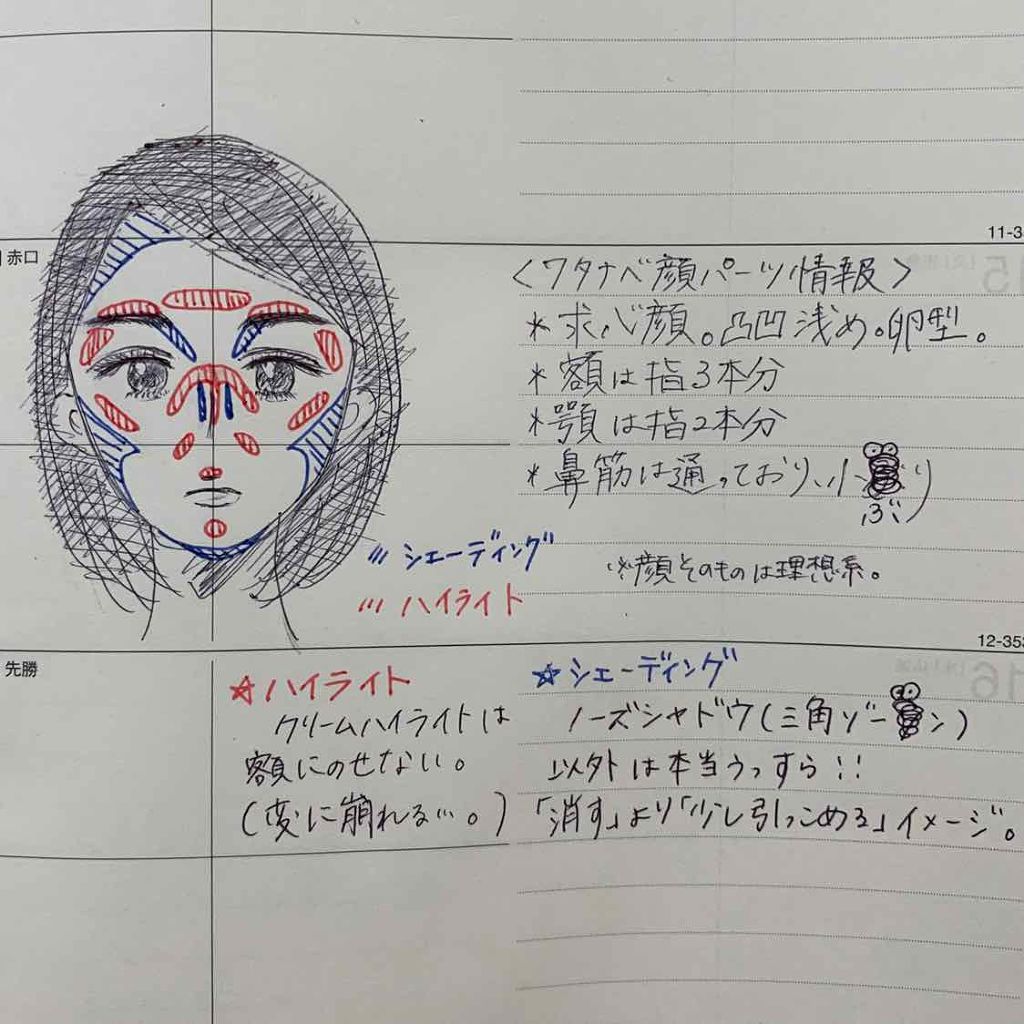 11-3
赤口
<ワタナベ顔パーツ情報>
*求心顔。凸凹浅め。卵型。
*額は指3本分
*顎は指2本分
*鼻筋は通っており、小ぶり
ぶり
シェーディング
※顔そのものは理想系。
ハイライト
12-353
先勝
☆ハイライト
クリームハイライトは
額にのせない。
(変に崩れる…。)
☆シェーディング
ノーズシャドウ(三角ゾーン)
以外は本当うっすら!!
「消す」より「少し引っこめる」イメージ。
15
16